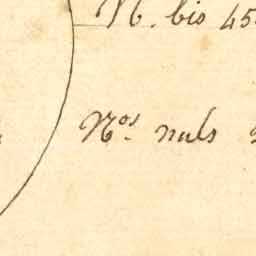 N. bis 45
Nos. nuls